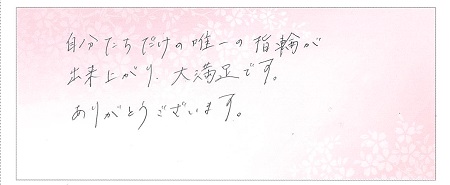 自分たちだけの唯一の指輪が
出来上がり、大満足です。
ありがとうございます。